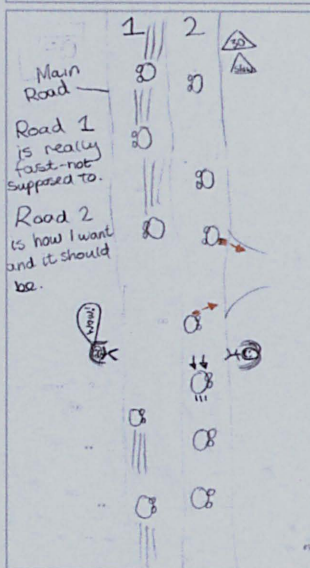 1 2
30
slow
Main
Road
Road 1
is really
fast-not
supposed to.
Road 2
is how I want
and it should
be.